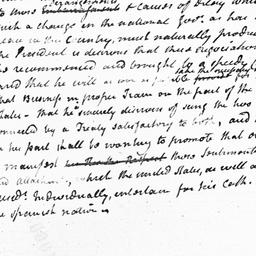 arrangements
to those & causes of delay which
such a change in the national Govt. as has
in the Country, must naturally produce
the President is desirous that these negotiations
be recommenced and brought to a speedy
and that he will as soon as take the necessary
that Business in proper train on the part of the
States - that he sincerely desirous of seeing the two
connected by a Treaty satisfactory to both, and
on her part shall be wanting to promote that
manifest his those sentiments
and attachment, which the United States, as well as
Individually, entertain for his Cath.
the Spanish nation